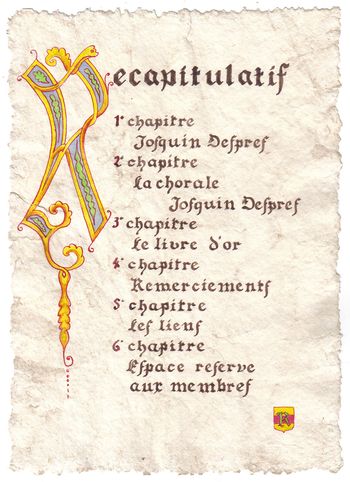 Recapitulatif
1 chapitre
Josquin Despres
2 chapitre
La chorale
Josquin Despres
3 chapitre
Le livre d'or
4 chapitre
Remerciements
5 chapitre
Les liens
6 chapitre
Espace reserve
aux membres
R